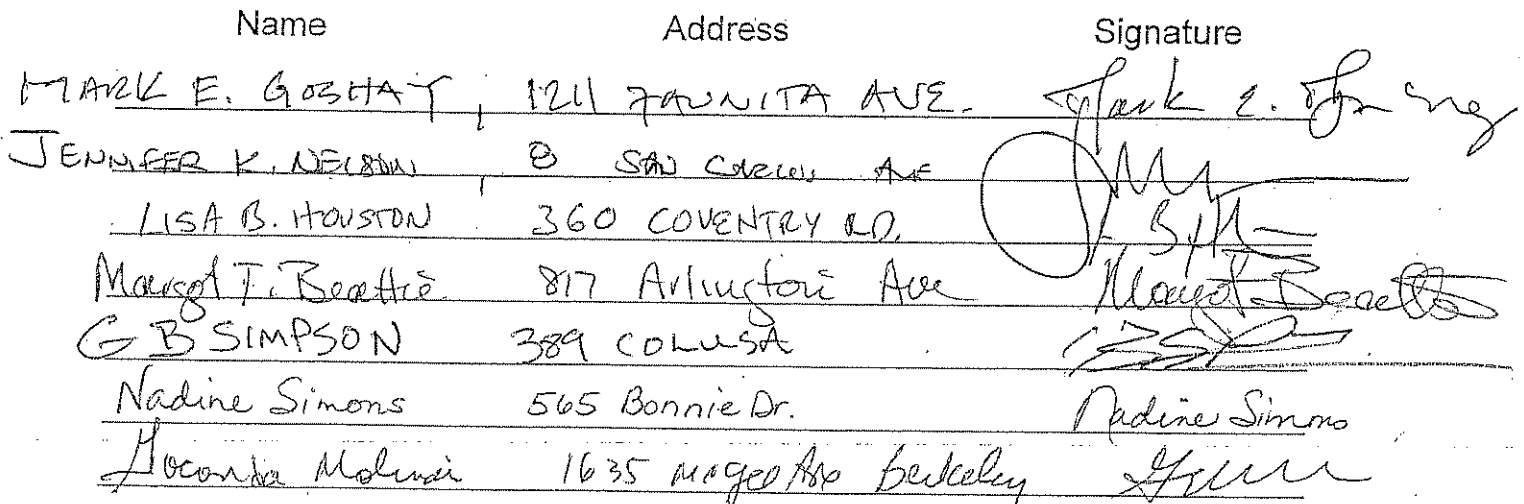 Name Address Signature
MARK E. GOSHAY, 1211 JAUNITA AVE. Mark E.
JENNIFER K. NELSON, 8 SAN CARLOS AVE
LISA B. HOUSTON 360 COVENTRY RD.
Margot T. Beattie 817 Arlington Ave Margot Beattie
G B SIMPSON 389 COLUSA
Nadine Simons 565 Bonnie Dr. Nadine Simons
1635 Berkeley